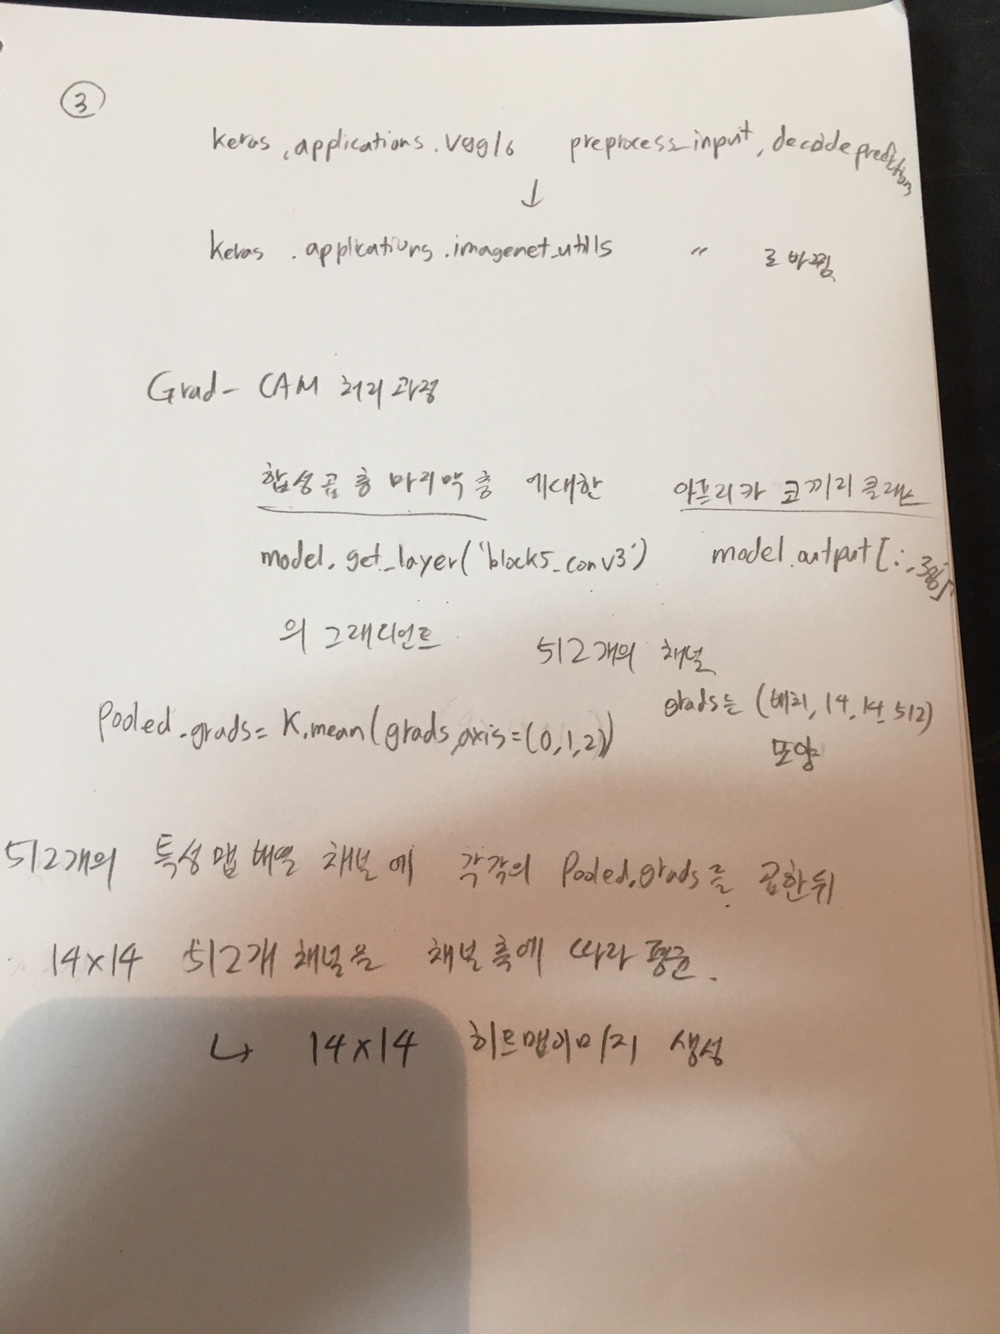 ③
keras.applications.vgg16 preprocess_input, decode predictions
↓
keras.applications.imagenet_utils 〃 로 바뀜
Grad-CAM 처리 과정
합성곱 층 마지막 층 에대한 아프리카 코끼리 클래스
model.get_layer('block5_conv3') model.output[:,386]
의 그래디언트
512개의 채널
grads는 (배치, 14, 14, 512)
모양
Pooled_grads = K.mean(grads, axis=(0,1,2))
512개의 특성맵 배열 채널에 각각의 Pooled_grads를 곱한뒤
14×14 512개 채널을 채널 축에 따라 평균.
↳ 14×14 히트맵이미지 생성